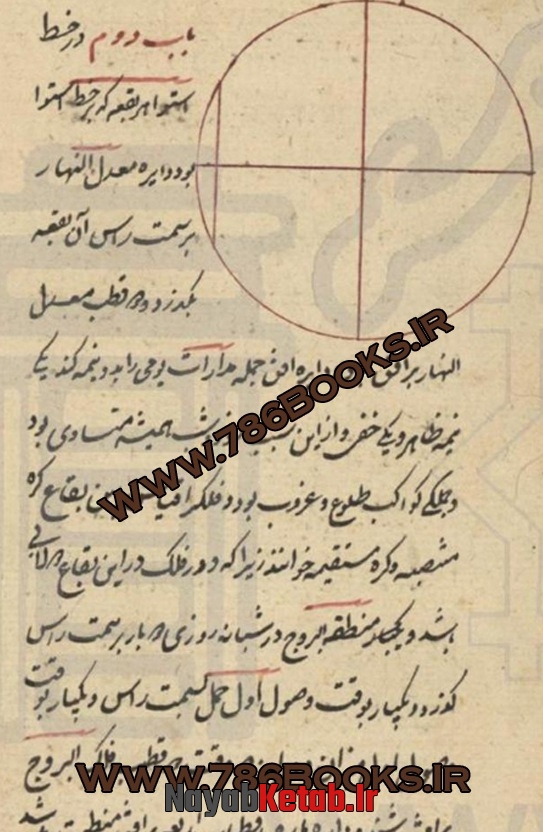 باب دوم در خط
استوا هر بقعه که بر خط استوا
بود دایره معدل النهار
بر سمت راس آن بقعه
بگذرد و دو قطب معدل
النهار بر افق دایره افق جمله مدارات یومی را بدو نیمه کند یکی
نیمه ظاهر و یکی خفی و از این سبب شب همیشه متساوی بود
و جملگی کواکب طلوع و غروب بود و فلک را بقاع کره
منتصبه و کره مستقیمه خوانند زیرا که دور فلک در این بقاع دولابی
باشد و یکبار منطقه البروج در شبانه روزی دو بار بر سمت راس
گذرد و یکبار بوقت وصول اول حمل بسمت راس و یکبار بوقت
قطب فلک البروج
www.786Books.IR
www.786Books.IR
NayabKetab.Ir